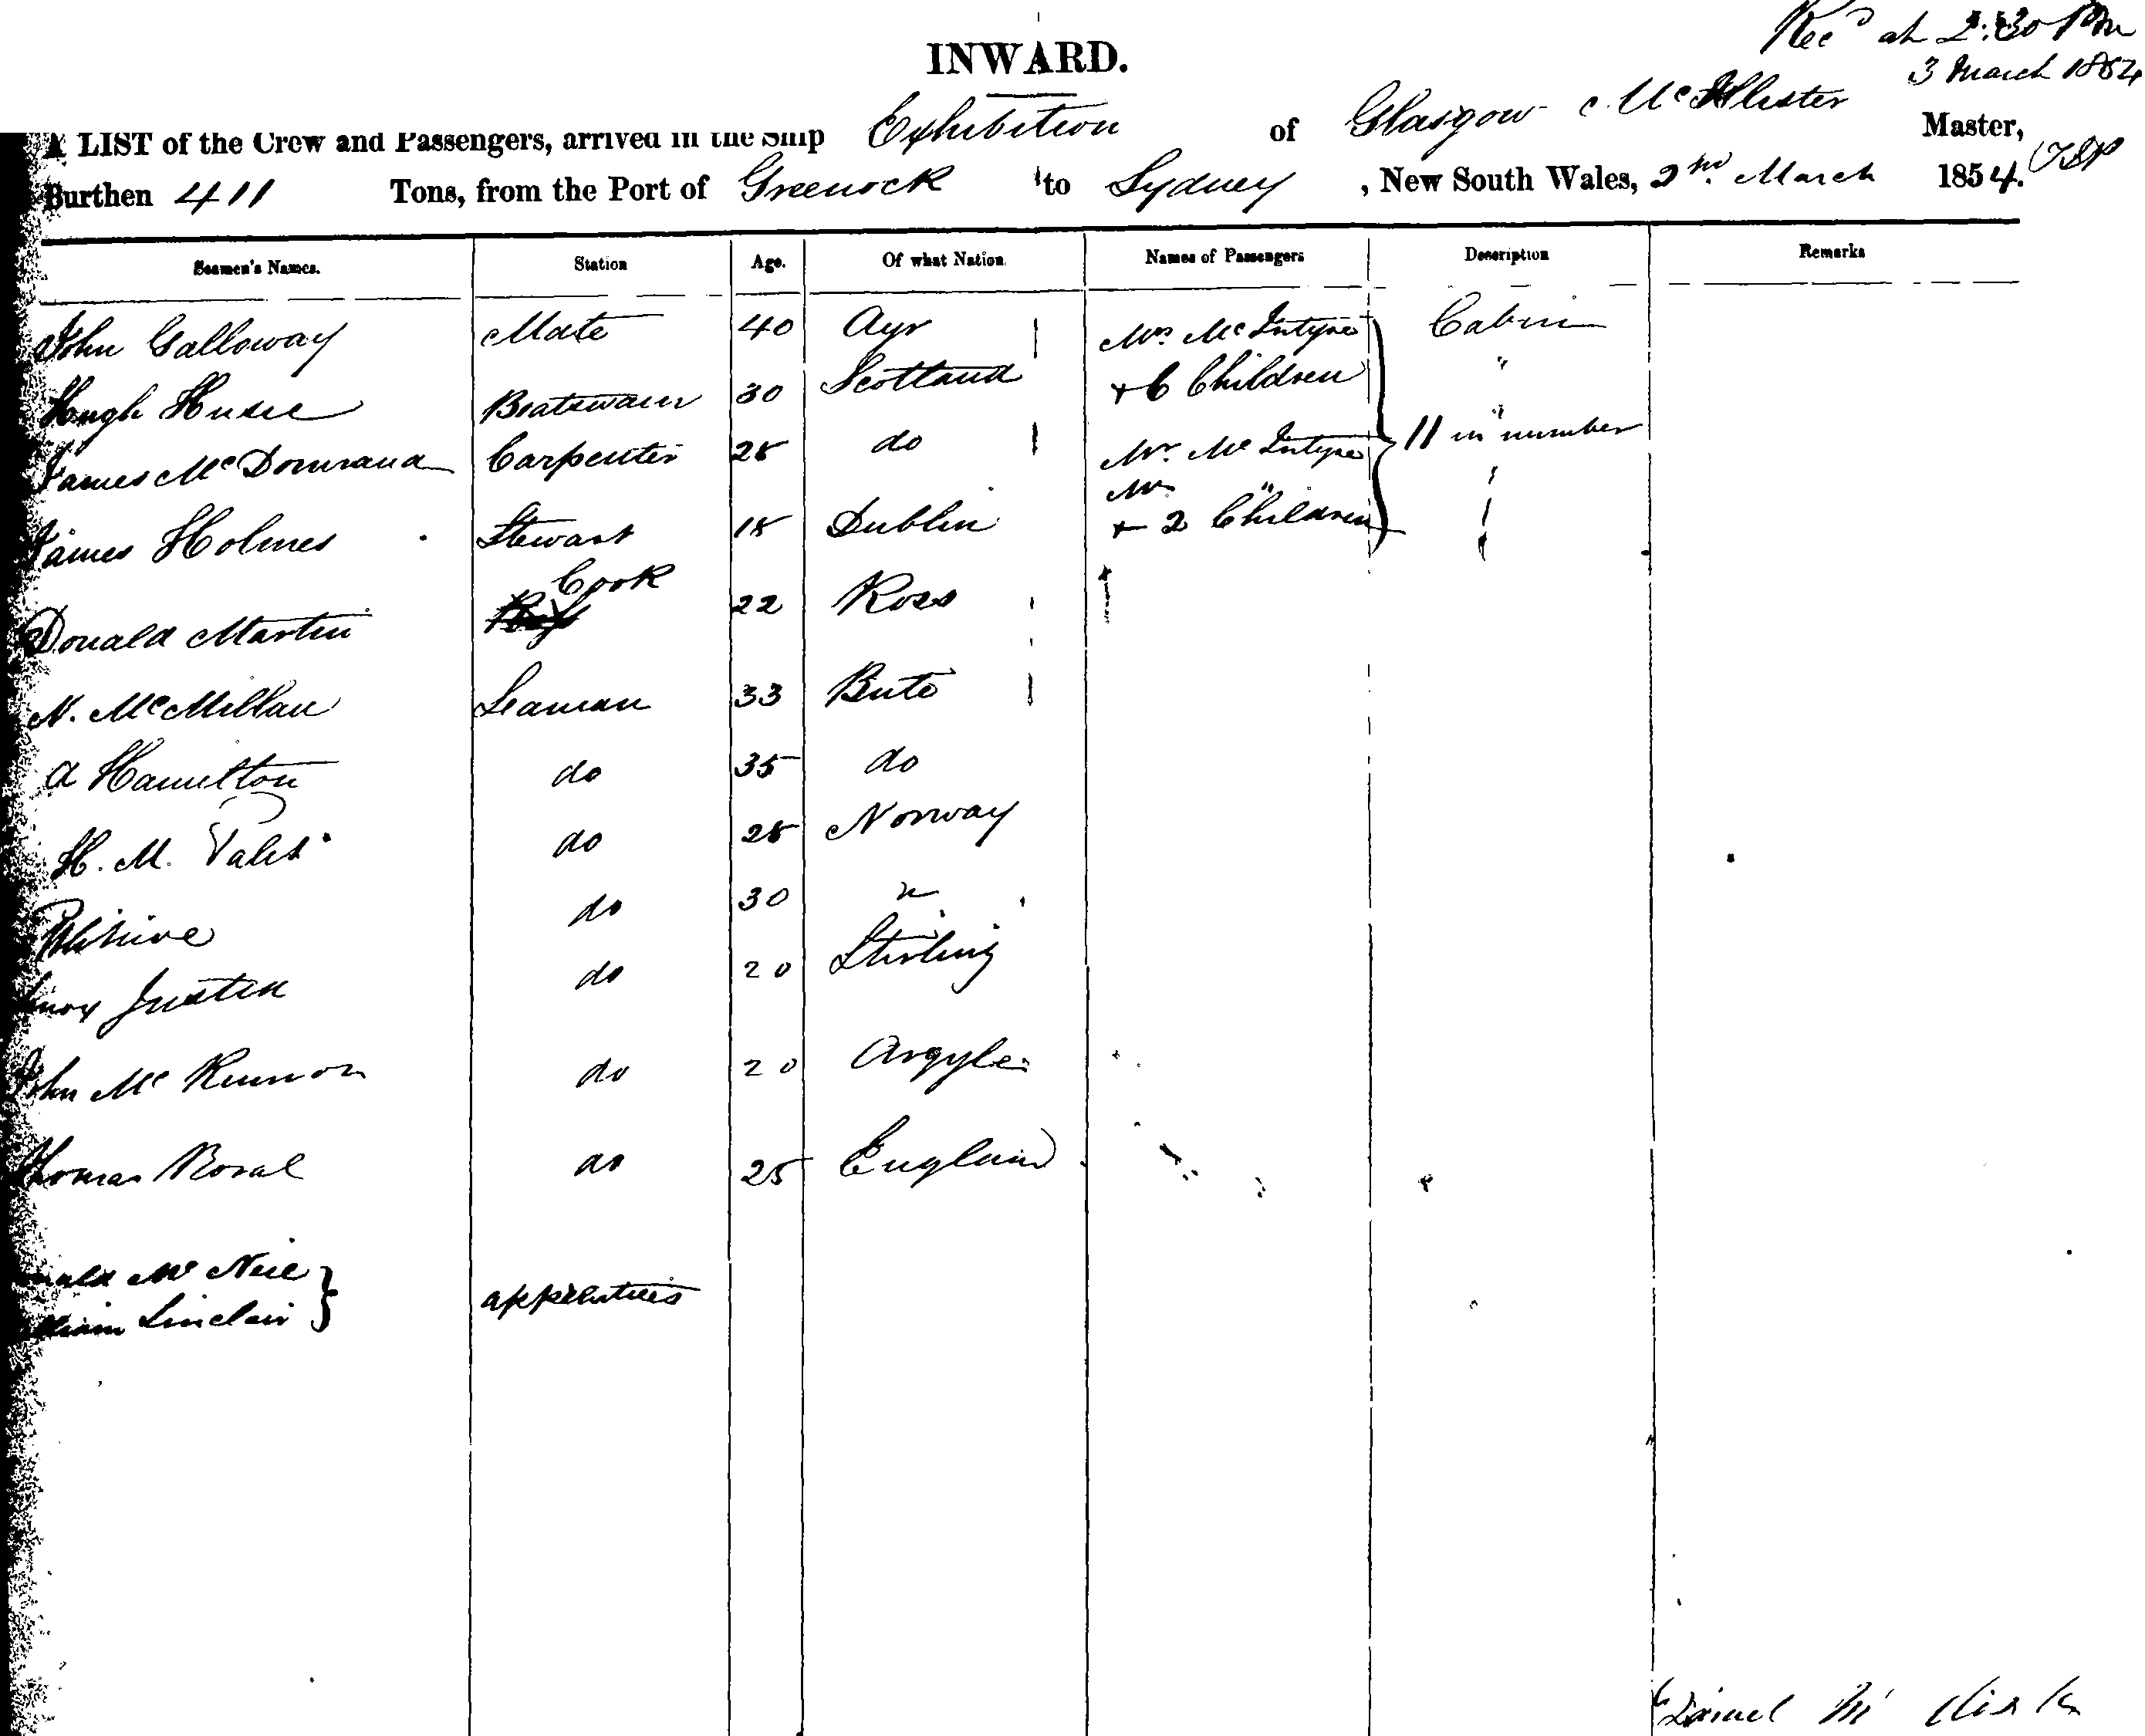 Rec'd at 2.30 Pm
3 March 1854
INWARD.
A LIST of the Crew and Passengers, arrived in the Ship Exhibition of Glasgow McAllister Master,
Burthen 411 Tons, from the Port of Greenock to Sydney, New South Wales, 2nd March 1854.
Seamen's Names. Station Age. Of what Nation. Names of Passengers Description Remarks
John Galloway Mate 40 Ayr Mrs. McIntyre Cabin
Hugh Boatswain 30 Scotland + 6 Children "
James Mc Carpenter 28 do Mr. McIntyre 11 in number
Mrs "
James Holmes Stewart 18 Dublin + 2 Children
Cook
Donald Martin 22 Ross
N. McMillan Seaman 33 Bute
A Hamilton do 35 do
H. M. do 28 Norway
do 30 "
Justin do 20 Stirling
John McKinnon do 20 Argyle
Thomas do 25 England
McNeil
William Sinclair } apprentices